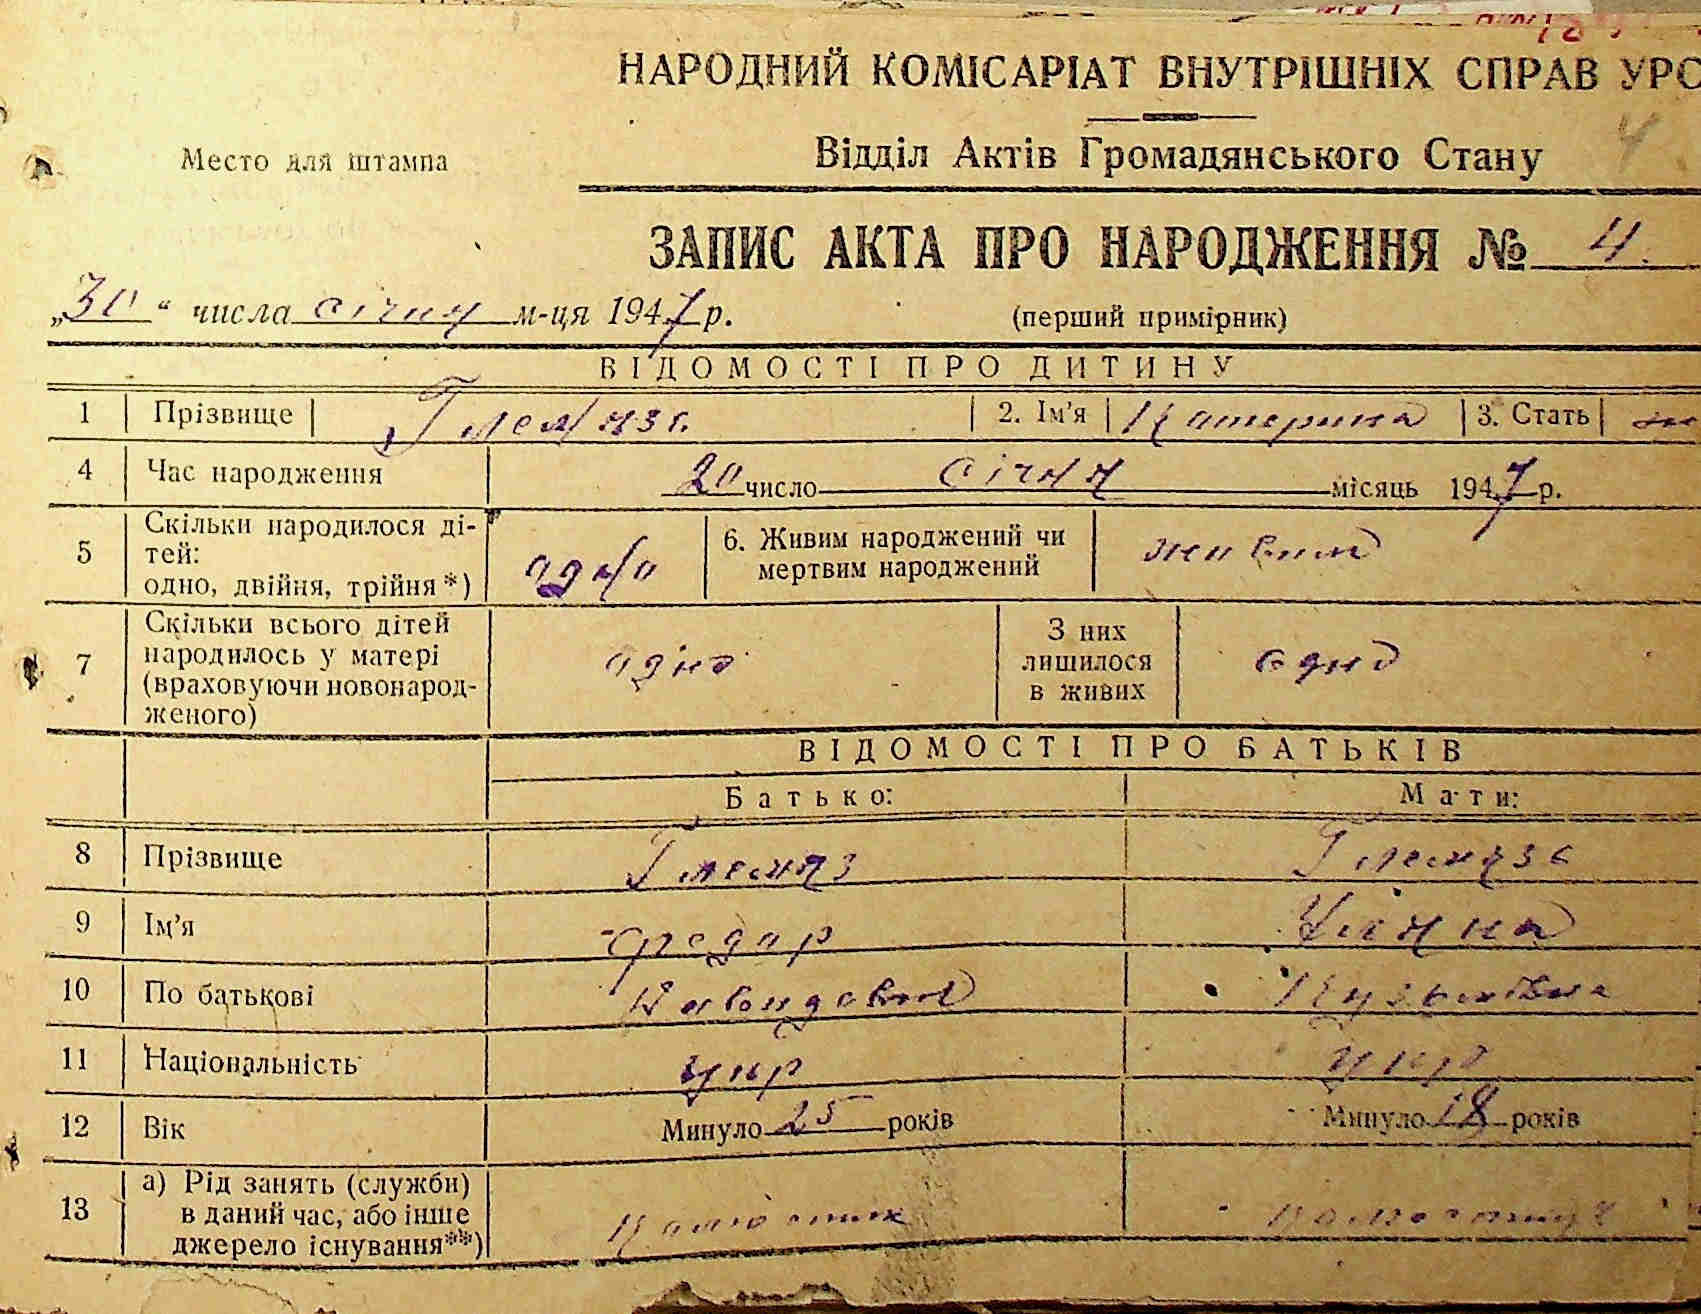 НАРОДНИЙ КОМІСАРІАТ ВНУТРІШНІХ СПРАВ УРС
Место для штампа
Відділ Актів Громадянського Стану 4
ЗАПИС АКТА ПРО НАРОДЖЕННЯ № 4
„30“ числа січня м-ця 1947 р. (перший примірник)
ВІДОМОСТІ ПРО ДИТИНУ
1 Прізвище 2. Ім'я Катерина 3. Стать ж
4 Час народження 20 число січня місяць 1947 р.
5 Скільки народилося ді-
тей:
одно, двійня, трійня*) одно
6. Живим народжений чи
мертвим народжений живим
7 Скільки всього дітей
народилось у матері
(враховуючи новонарод-
женого) одно
З них
лишилося
в живих одно
ВІДОМОСТІ ПРО БАТЬКІВ
Батько: Мати:
8 Прізвище
9 Ім'я Федор Уляна
10 По батькові Давидович Кузьмівна
11 Національність укр укр
12 Вік Минуло 25 років Минуло 18 років
13 а) Рід занять (служби)
в даний час, або інше
джерело існування**) колгосник